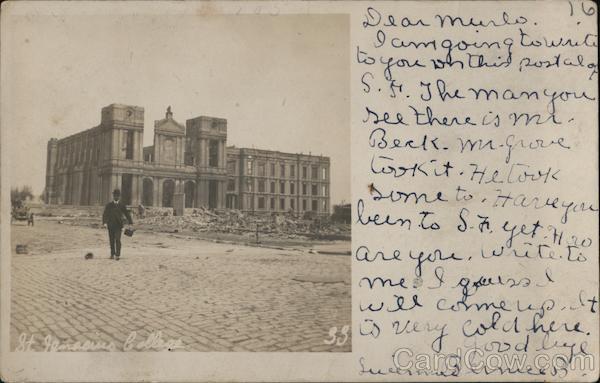 16
Dear Murlo.
I am going to write
to you on this postal of
S. F. The man you
see there is Mr.
Beck. Mr. Grove
took it. He took
some to. Have you
been to S. F. yet. How
are you. write to
me. I guess I
will come up. It
is very cold here.
Good bye
St Ignacius College
33
CardCow.com